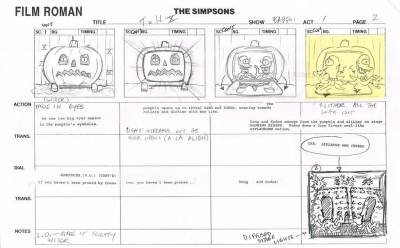 FILM ROMAN
THE SIMPSONS
TITLE T.O.H. V
SHOW
ACT 1
PAGE 2
SC BG. TIMING
SC BG. TIMING
SC BG. TIMING
SC BG. TIMING
ACTION
FADE IN EYES
As we two big eyes appear
in the pumpkin's eyeholes.
The
pumpkin opens up to reveal KANG and KODOS, wearing tuxedo
collars and dickies with bow ties.
Kang and Kodos emerge from the pumpkin and slither on stage
SLITHER ALL THE
WAY OUT
TRANS.
LIGHT STREAMS OUT AS
DOOR OPENS (A LA ALIEN)
SFX: APPLAUSE AND CHEERS
DIAL
ANNOUNCER (V.O.) (CONT'D)
If you haven't been probed by these
two, you haven't been probed...
Kang and Kodos!
TRANS.
NOTES
L.O. - MAKE IT SLIGHTLY
WIDER